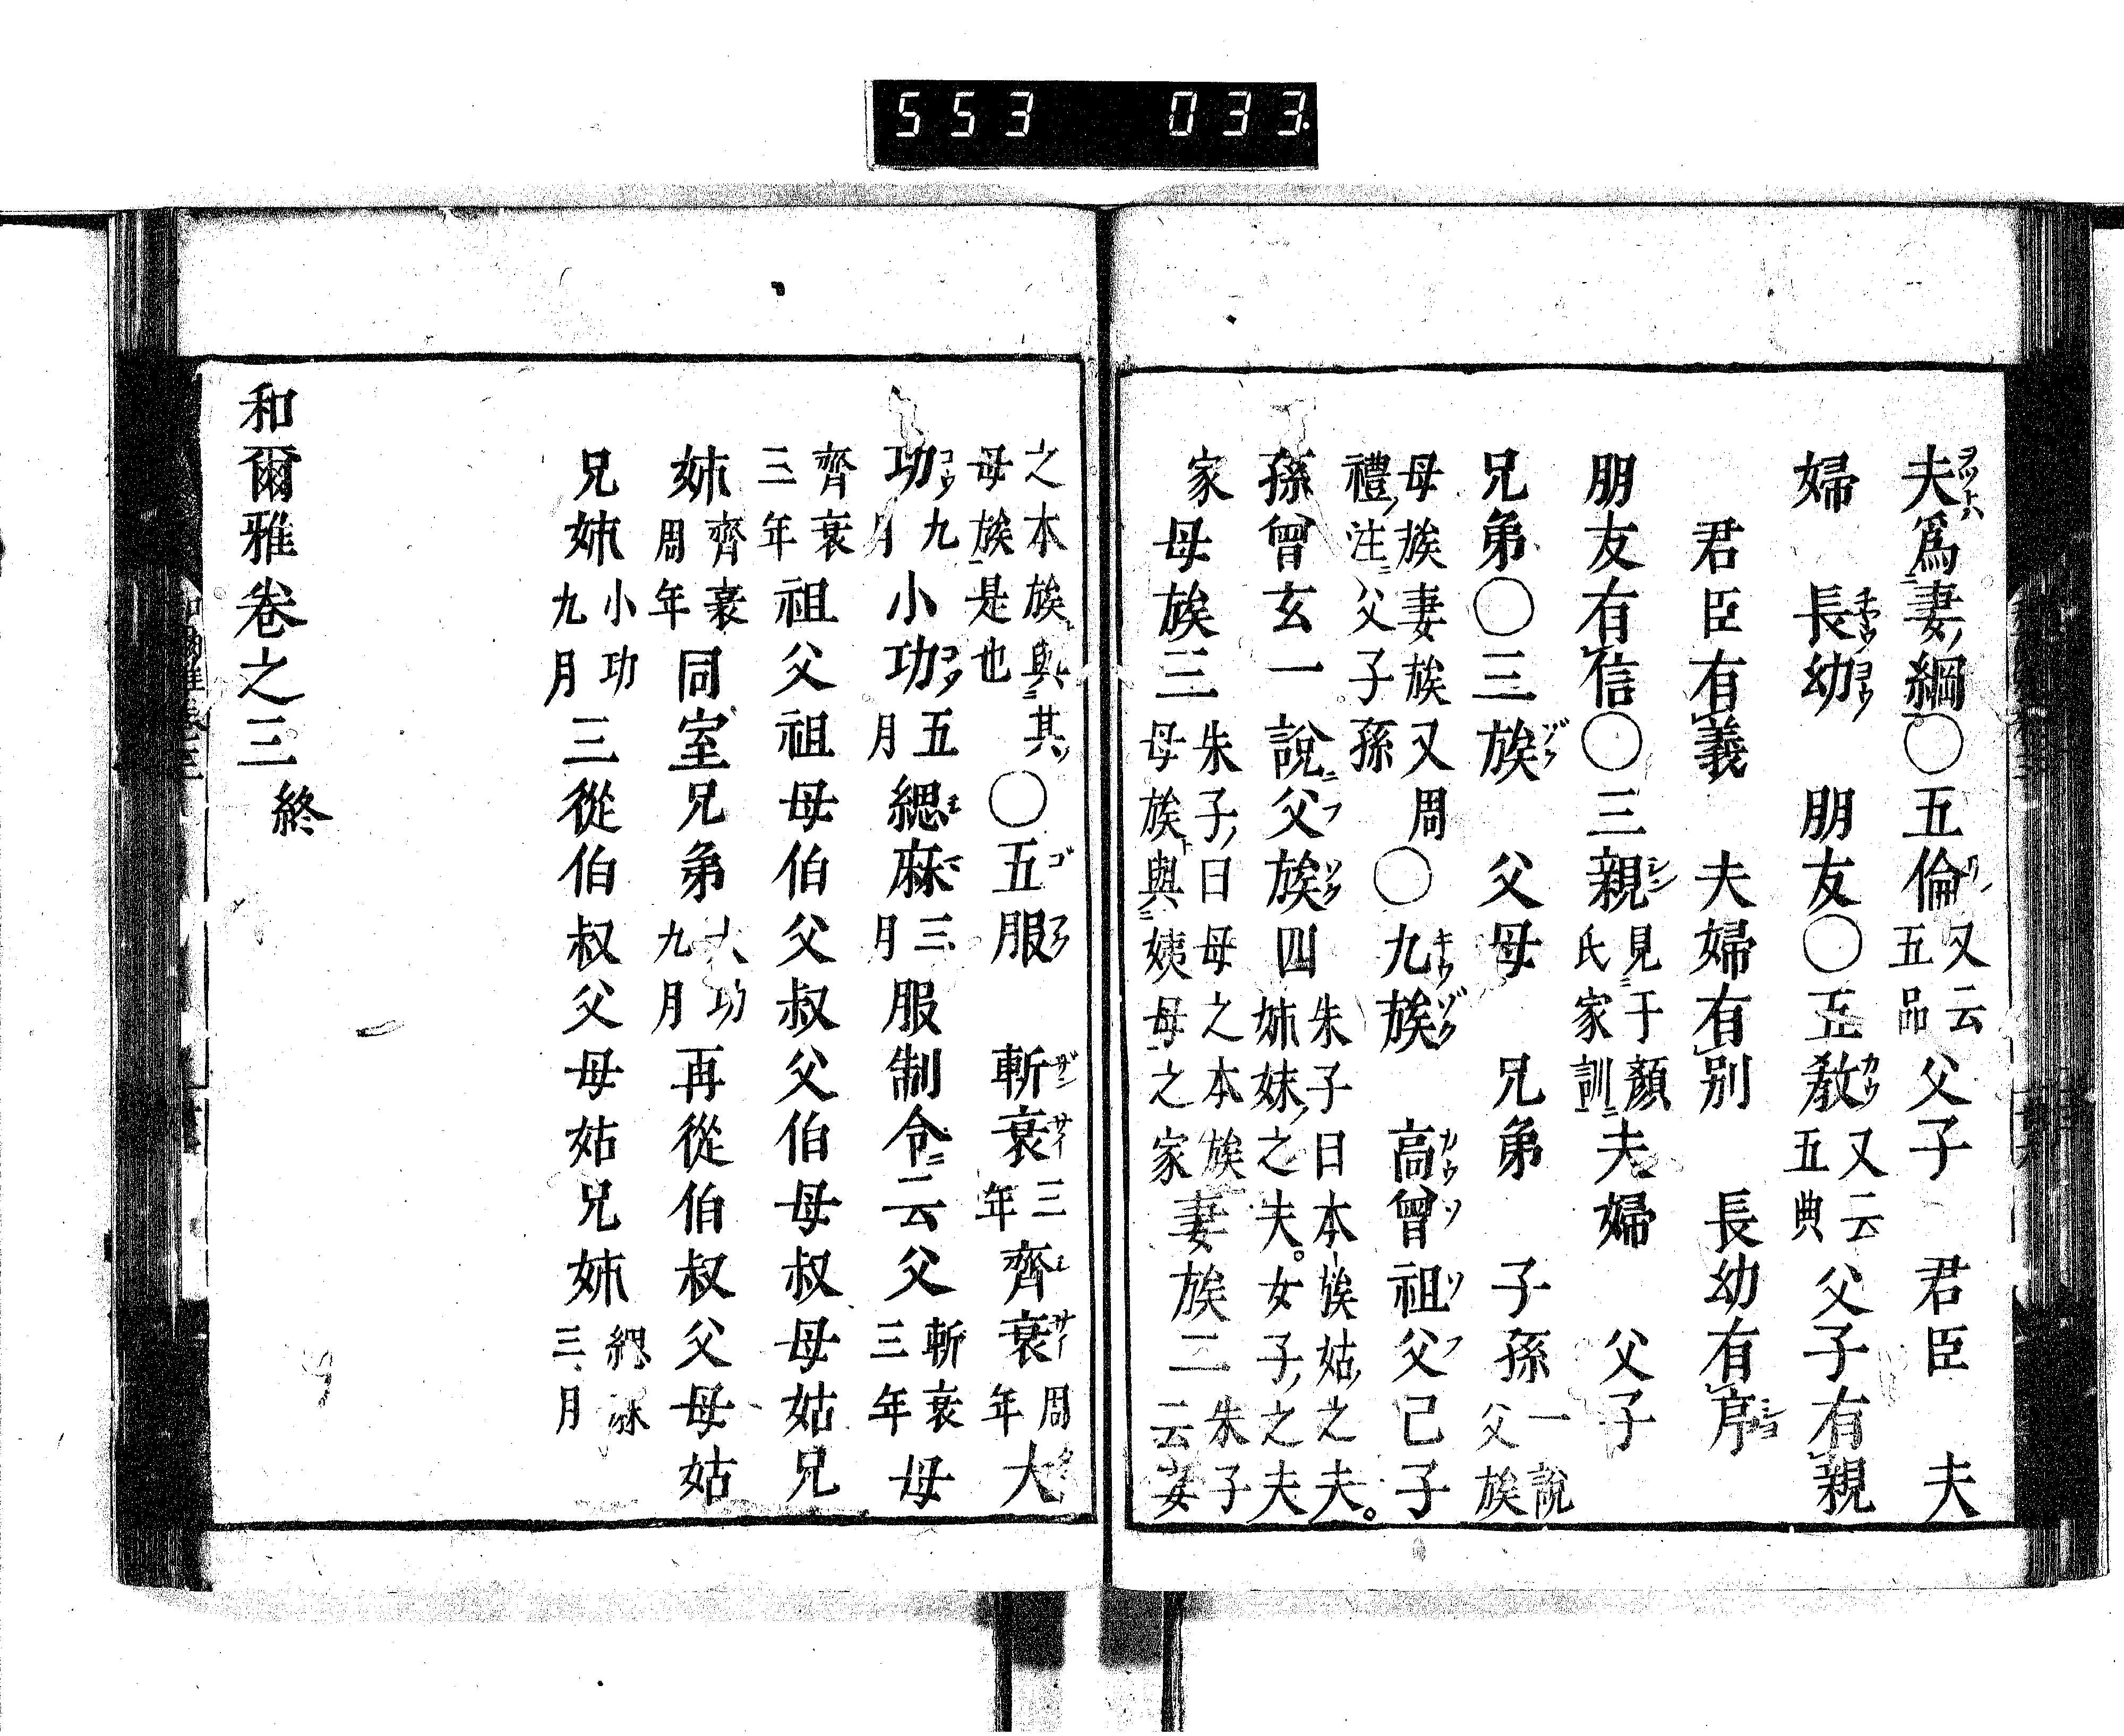 553 033
夫為妻綱〇五倫又云五品父子　君臣　夫
婦　長幼　朋友〇五教又云五典父子有親
君臣有義　夫婦有別　長幼有序
朋友有信〇三親見于顏氏家訓夫婦　父子
兄弟〇三族　父母　兄弟　子孫一說父族
母族妻族又周禮注父子孫〇九族　高曾祖父己子
孫曾玄一說父族四朱子曰本族姑之夫。姊妹之夫。女子之夫
家母族三朱子曰母之本族母族與姨母之家妻族二朱子云妻
之本族與其母族是也〇五服　斬衰三年齊衰周年大
功九月小功五月緦麻三月服制令云父斬衰三年母
齊衰三年祖父祖母伯父叔父伯母叔母姑兄
姊齊衰周年同室兄弟大功九月再從伯叔父母姑
兄姊小功九月三從伯叔父母姑兄姊緦麻三月
和爾雅卷之三終